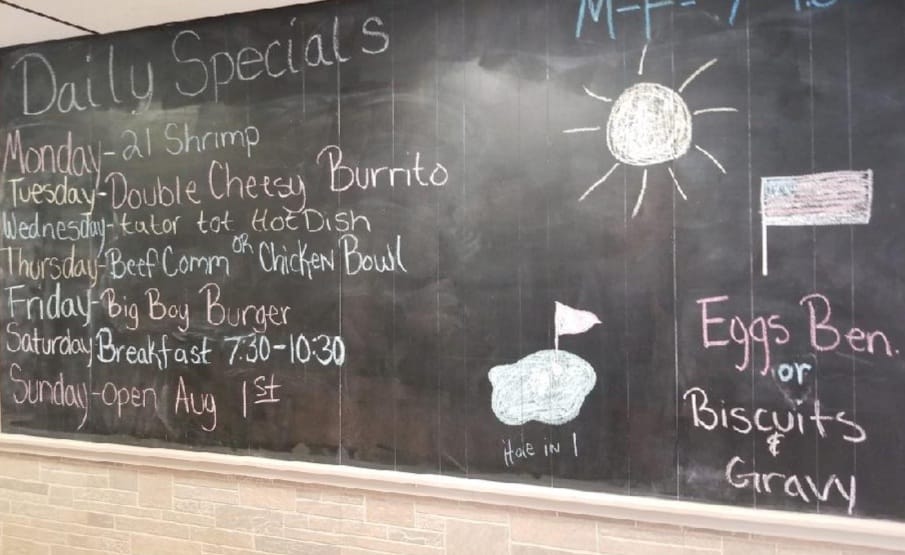 Daily Specials
Monday-21 Shrimp
Tuesday-Double Cheesy Burrito
Wednesday-tutor tot HotDish
Thursday-Beef Comm OR Chicken Bowl
Friday-Big Boy Burger
Saturday Breakfast 7:30-10:30
Sunday-open Aug 1st
M-F-
Hole in 1
Eggs Ben.
or
Biscuits
&
Gravy